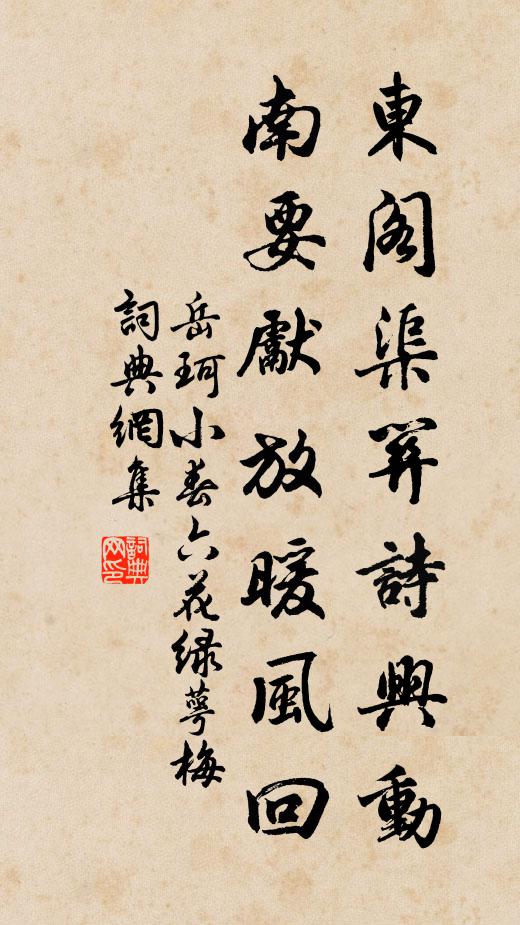 東閣渠 詩興動
南要獻放暖風回
岳珂小春六花绿萼梅
詞典網集
詞典网印